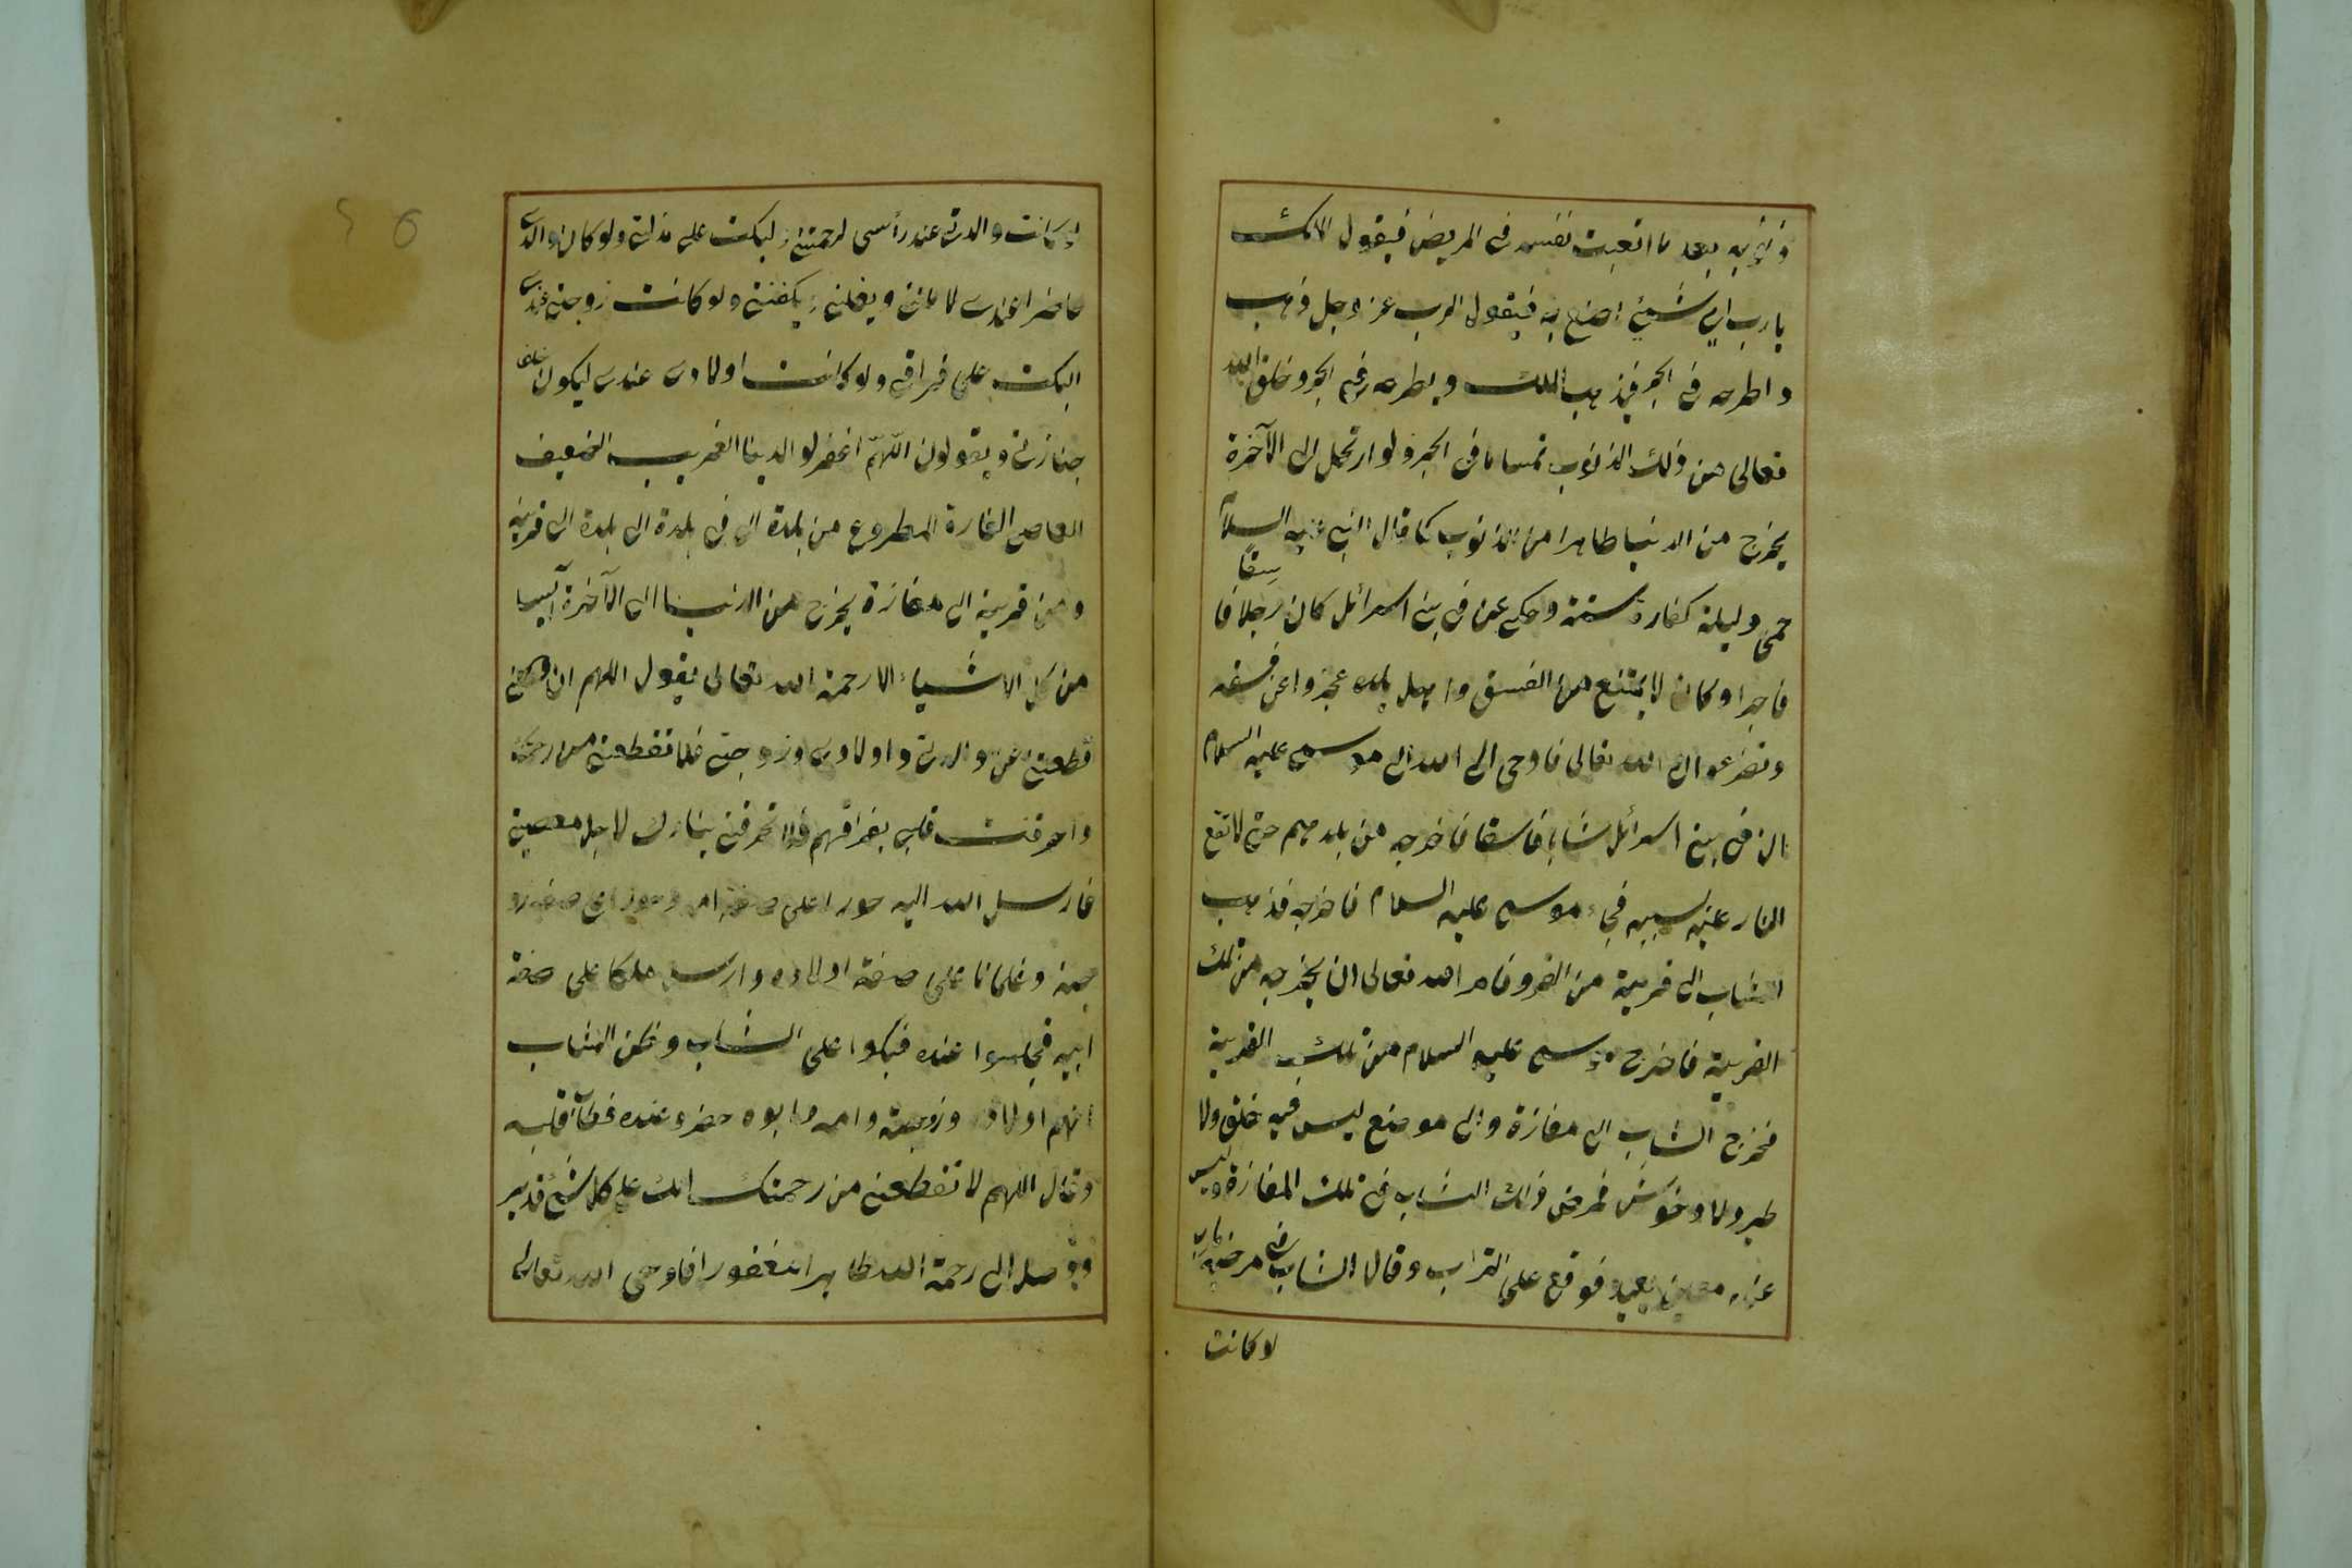 ذنوبه بعد ما اتعبت نفسه فى المريض فيقول الملك
يا رب اى شيئ اصنع به فيقول الرب عز وجل فذهب
واطرحه فى البحر فيذهب الملك ويطرحه فى البحر وخلق الله
تعالى من ذلك الذنوب تمساحا فى البحر ولو ارتحل الى الآخرة
يخرج من الدنيا طاهرا من الذنوب كما قال النبى عليه السلام
حمى وليلة كفارة سنة وحكى عن فى بنى اسرائل كان رجلا فا
سقا
فاجرا وكان لا يمتنع من الفسق واهل بلده عجزوا عن فسقه
وتضرعوا الى الله تعالى فاوحى الى الله الى موسى عليه السلام
ان فى بنى اسرائل شابا فاسقا فاخرجه من بلدهم حتى لا تقع
النار عليه بسببه فجاء موسى عليه السلام فاخرجه فذهب
الشاب الى قرية من القرى فامر الله تعالى ان يخرجه من تلك
القرية فاخرج موسى عليه السلام من تلك القرية
فخرج الشاب الى مفازة والى موضع ليس فيه خلق ولا
طير ولا وحوش فمرض ذلك الشاب فى تلك المفازة وليس
عنده معين يعينه فوقع على التراب وقال الشاب فى مرضه يا رب
لو كانت
لو كانت والدتى عند رأسى لرحمتنى وبكت على مذلتى ولو كان والدى
حاضرا عندى لاعاننى ويغسلنى ويكفننى ولو كانت زوجتى عندى
لبكت على فراقى ولو كانت اولادى عندى ليكون خلف
جنازتى ويقولون اللهم اغفر لوالدينا الغريب الضعيف
العاصى المطروح من بلدة الى بلدة الى قرية
ومن قرية الى مفازة يخرج من الدنيا الى الآخرة آيسا
من كل الاشياء الا رحمة الله تعالى يقول اللهم ان
قطعتنى عن والدتى واولادى وزوجتى فلا تقطعنى من رحمتك
واحرقت قلبى بفراقهم فلا تحرقنى بنارك لاجل معصيتى
فارسل الله اليه حورا على صفة امه وحورا على صفة زو
جته وغلمانا على صفة اولاده وارسل ملكا على صفة
ابيه فجلسوا عنده فبكوا على الشاب وظن الشاب
انهم اولاده وزوجته وامه وابوه حضر عنده فطاب قلبه
وقال اللهم لا تقطعنى من رحمتك انك على كل شيئ قدير
فوصل الى رحمة الله طاهرا مغفورا فاوحى الله تعالى